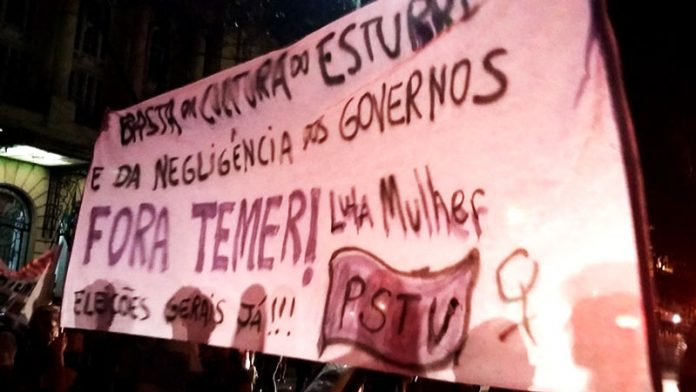 BASTA DA CULTURA DO ESTUPRO
E DA NEGLIGÊNCIA DOS GOVERNOS
FORA TEMER! Luta Mulher
ELEIÇÕES GERAIS JÁ!!! PSTU